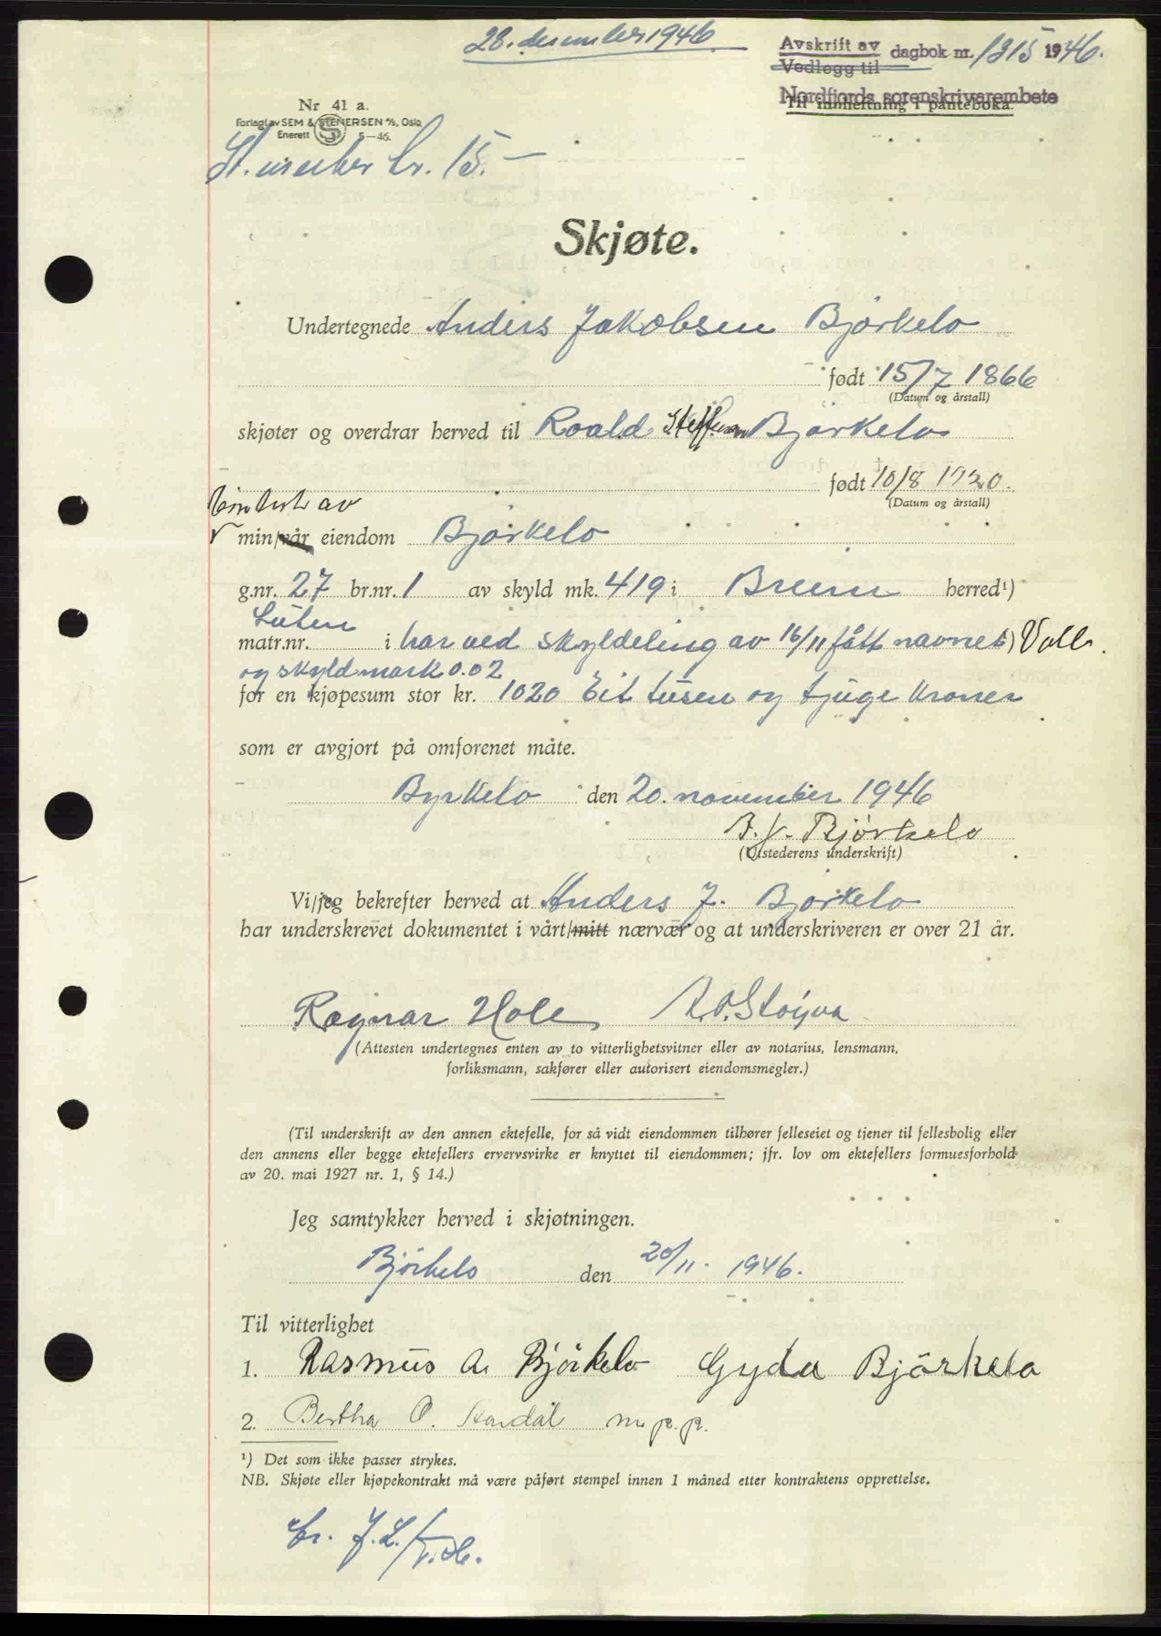 28. desember 1946.
Avskrift av dagbok nr. 1315 1946.
Vedlegg til
Nordfjords sorenskrivarembete
Til innheftning i panteboka.
Nr 41 a.
Forlagt av SEM & STENERSEN A/S, Oslo
Enerett S 5—46.
St. merker kr. 15.—
Skjøte.
Undertegnede Anders Jakobsen Bjørkelo
født 15/7 1866
(Datum og årstall)
skjøter og overdrar herved til Roald Steffen Bjørkelo
født 10/8 1920.
(Datum og årstall)
av
min/vår eiendom Bjørkelo
g.nr. 27 br.nr. 1 av skyld mk. 419 i Breim herred¹)
Luten
matr.nr. i har ved skyldeling av 16/11 fått navnet¹) Voll.
og skyldmark 0.02
for en kjøpesum stor kr. 1020 Eit tusen og tjuge kroner
som er avgjort på omforenet måte.
Byrkelo den 20. november 1946
A. J. Bjørkelo
(Utstederens underskrift)
Vi/jeg bekrefter herved at Anders J. Bjørkelo
har underskrevet dokumentet i vårt/mitt nærvær og at underskriveren er over 21 år.
Ragnar Hole A. O. Støyva
(Attesten undertegnes enten av to vitterlighetsvitner eller av notarius, lensmann,
forliksmann, sakfører eller autorisert eiendomsmegler.)
(Til underskrift av den annen ektefelle, for så vidt eiendommen tilhører felleseiet og tjener til fellesbolig eller
den annens eller begge ektefellers ervervsvirke er knyttet til eiendommen; jfr. lov om ektefellers formuesforhold
av 20. mai 1927 nr. 1, § 14.)
Jeg samtykker herved i skjøtningen.
Bjørkelo den 20/11. 1946.
Til vitterlighet
1. Rasmus A. Bjørkelo Gyda Bjørkelo
2. Bertha O. Sandal m. p. p.
¹) Det som ikke passer strykes.
NB. Skjøte eller kjøpekontrakt må være påført stempel innen 1 måned etter kontraktens opprettelse.